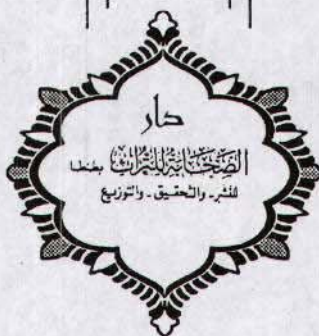 دار
الصحابة للتراث بطنطا
للنشر - والتحقيق - والتوزيع